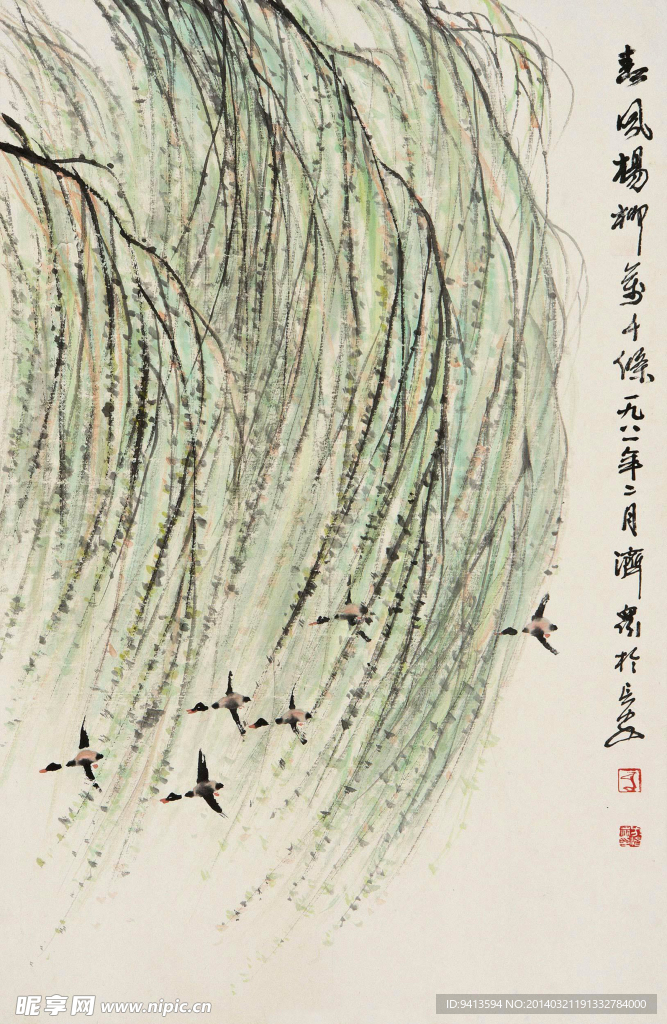 春风杨柳万千條一九八一年二月濟眾於長安
昵享网 www.nipic.cn
ID:9413594 NO:20140321191332784000